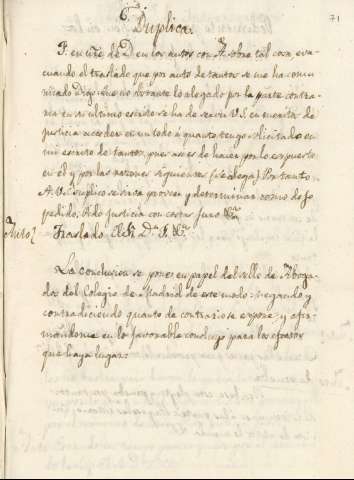 71
Duplica.
P. en nre de D. en los autos con A. sobre tal cosa, eva-
cuando el traslado que por auto de tantos se me ha comu-
nicado Digo: Que no obstante lo alegado por la parte contra-
ria en su ultimo escrito se ha de servir V.S. en meritos de
justicia acceder en un todo á quanto tengo solicitado en
mi escrito de tantos, pues asi es de hacer por lo expuesto
en el y por las razones siguientes (se alega). Por tanto
A V.S. suplico se sirva proveer y determinar como dejo
pedido. Pido justicia con costas juro
Auto
Traslado
La conclusion se pone en papel del sello de Aboga-
dos del Colegio de Madrid de este modo: negando y
contradiciendo quanto de contrario se expone, y afir-
mandome en lo favorable concluyo para los efectos
que haya lugar.